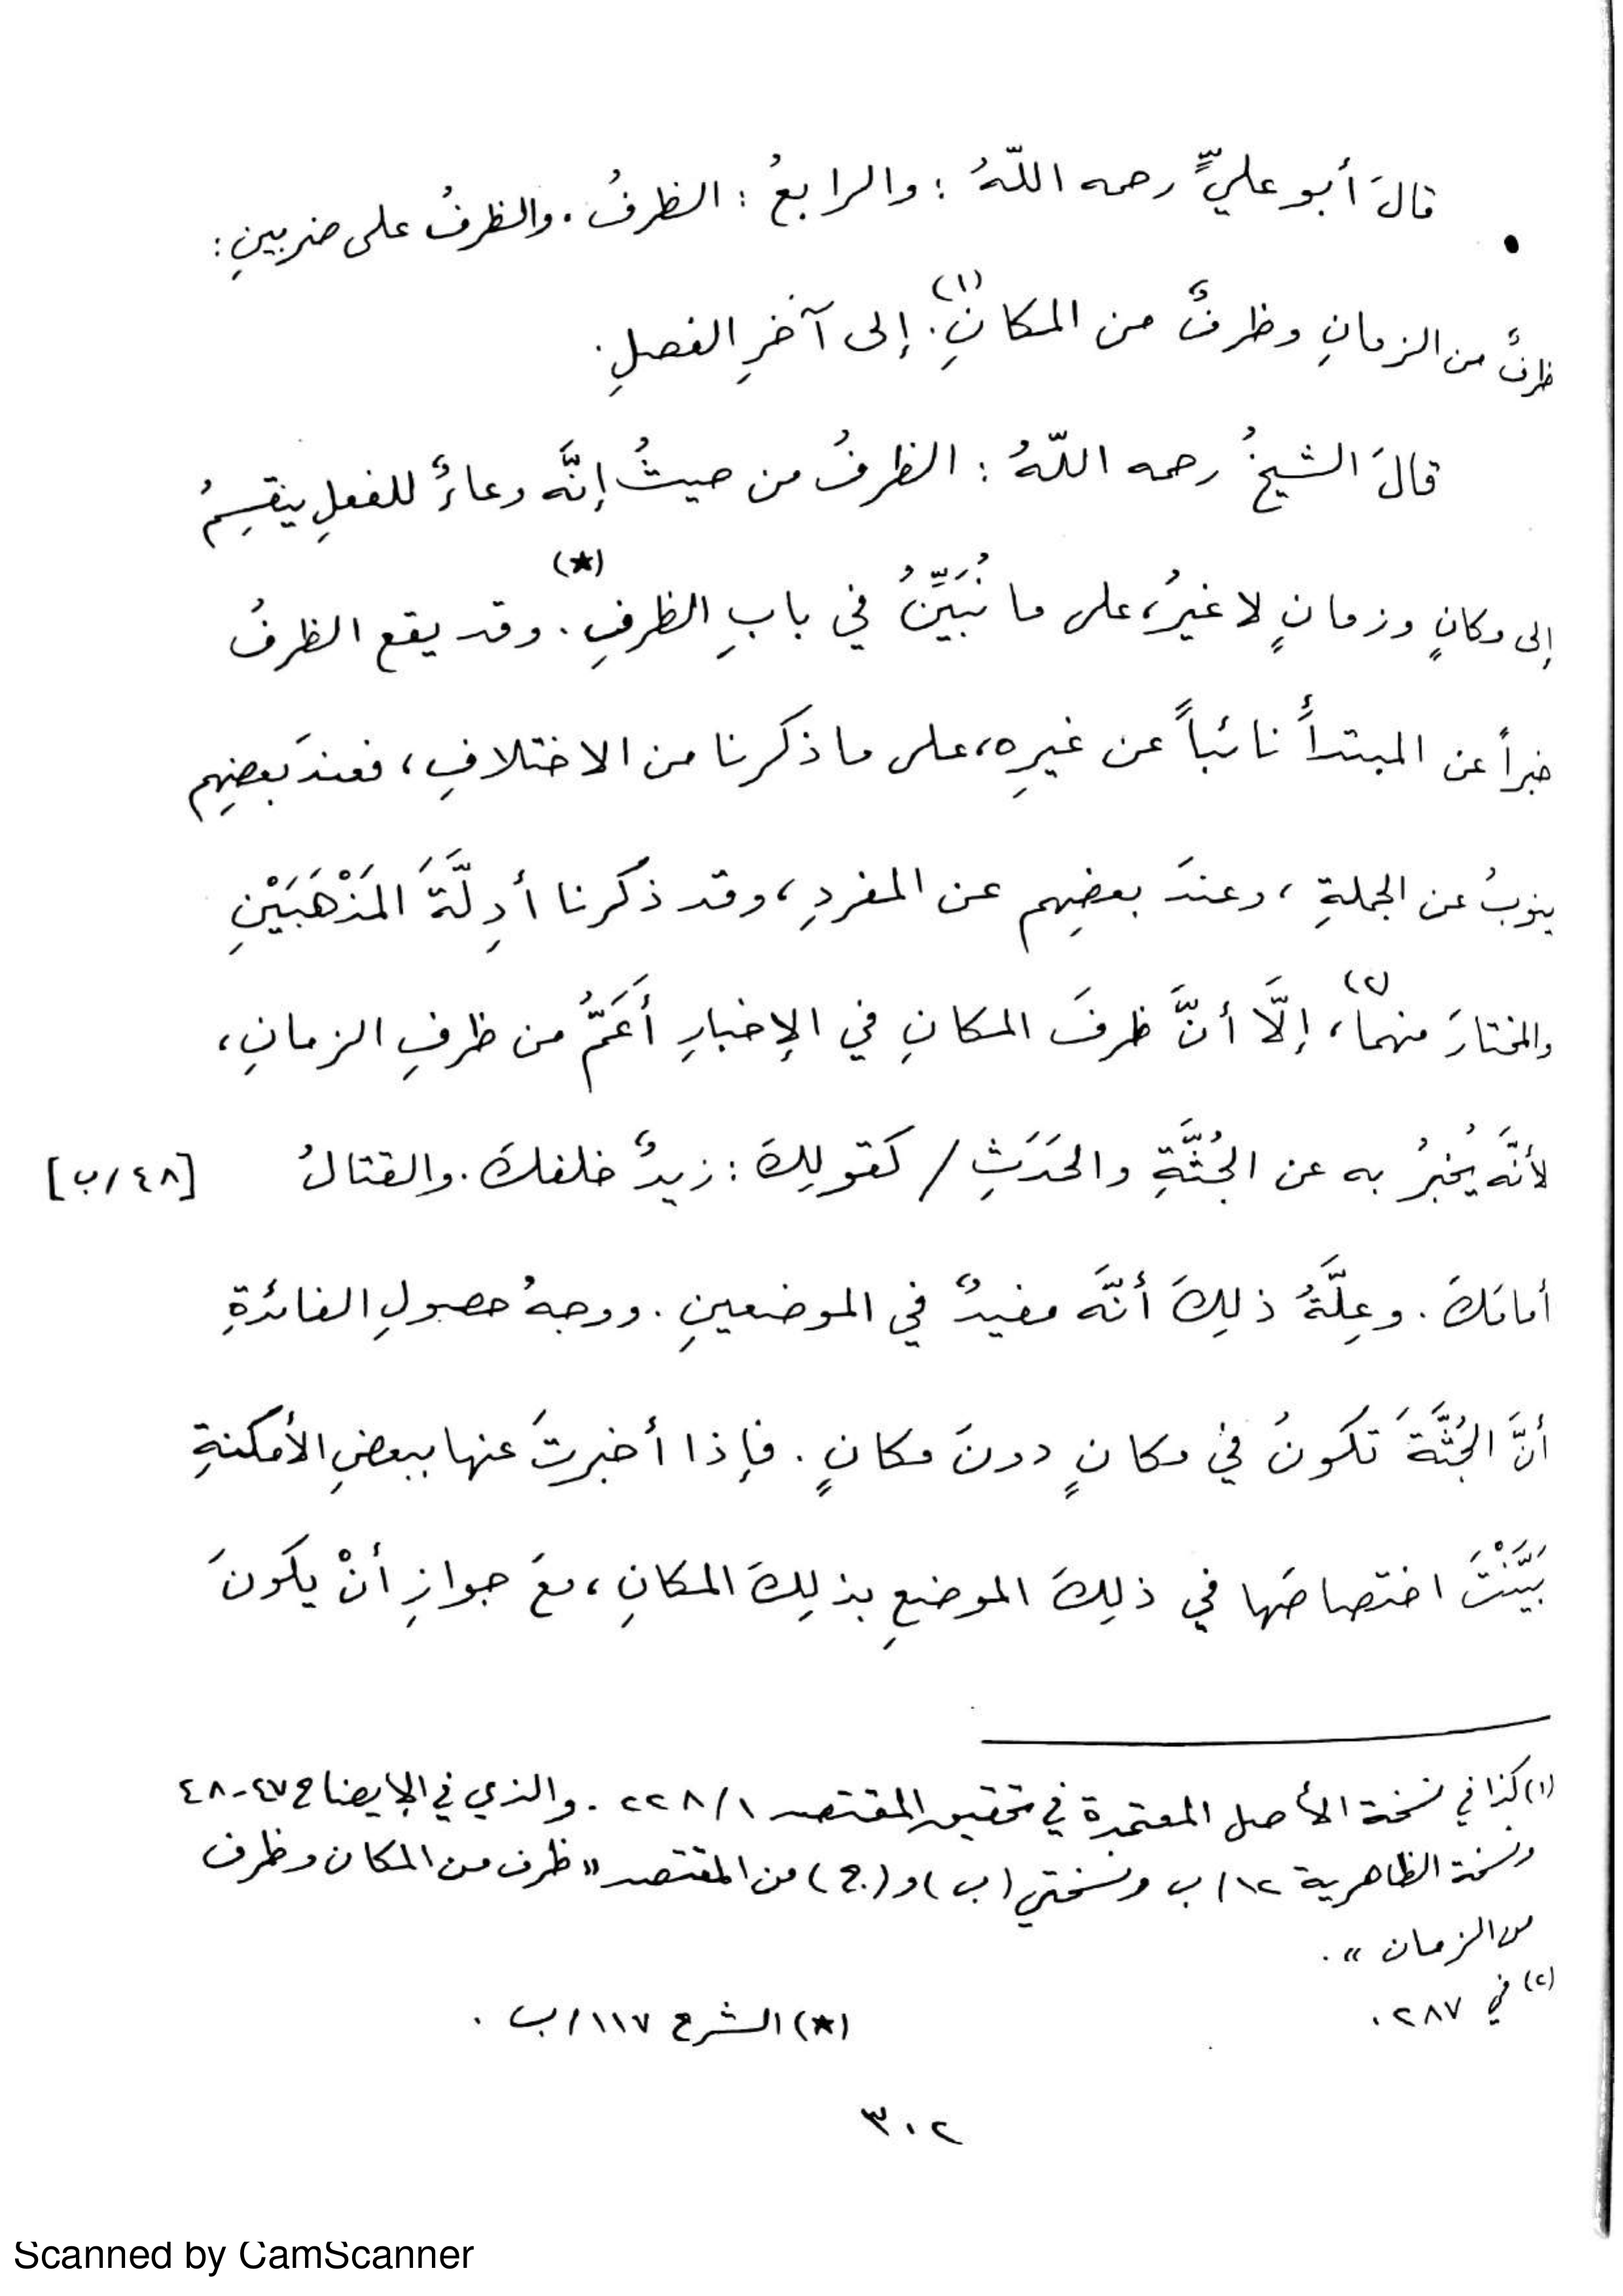 • قالَ أبو عليٍّ رحمه اللّهُ : والرابعُ : الظرفُ . والظرفُ على ضربينِ :
ظرفٌ من الزمانِ وظرفٌ من المكانِ (١). إلى آخرِ الفصلِ .
قالَ الشيخُ رحمه اللّهُ : الظرفُ من حيثُ إنَّه وعاءٌ للفعلِ ينقسِمُ
إلى مكانٍ وزمانٍ لا غيرُ، على ما نُبَيِّنُ في بابِ الظرفِ (★). وقد يقع الظرفُ
خبراً عن المبتدأ نائباً عن غيرِه، على ما ذكرنا من الاختلافِ، فعندَ بعضِهم
ينوبُ عن الجملةِ ، وعندَ بعضِهم عن المفردِ ، وقد ذكرنا أدِلَّةَ المَذْهَبَيْنِ
والمختارَ منهما (٢)، إلَّا أنَّ ظرفَ المكانِ في الإخبارِ أَعَمُّ من ظرفِ الزمانِ ،
لأنَّه يُخبرُ به عن الجُثَّةِ والحَدَثِ / كقولِكَ : زيدٌ خلفكَ . والقتالُ [٤٨/ب]
أمامَكَ . وعِلَّةُ ذلِكَ أنَّه مفيدٌ في الموضعينِ . ووجهُ حصولِ الفائدةِ
أنَّ الجُثَّةَ تكونُ في مكانٍ دونَ مكانٍ . فإذا أخبرتَ عنها ببعضِ الأمكنةِ
بَيَّنْتَ اختصاصَها في ذلِكَ الموضعِ بذلِكَ المكانِ ، معَ جوازِ أنْ يكونَ
(١) كذا في نسخة الأصل المعتمدة في تحقيق المقتصد ٢٢٨/١ . والذي في الإيضاح ٤٧-٤٨
ونسخة الظاهرية ١٢/ب ونسختي (ب) و(ج) من المقتصد « ظرف من المكان وظرف
من الزمان » .
(٢) في ٢٨٧ .
(★) الشرح ١١٧/ب .
٣٠٢
Scanned by CamScanner